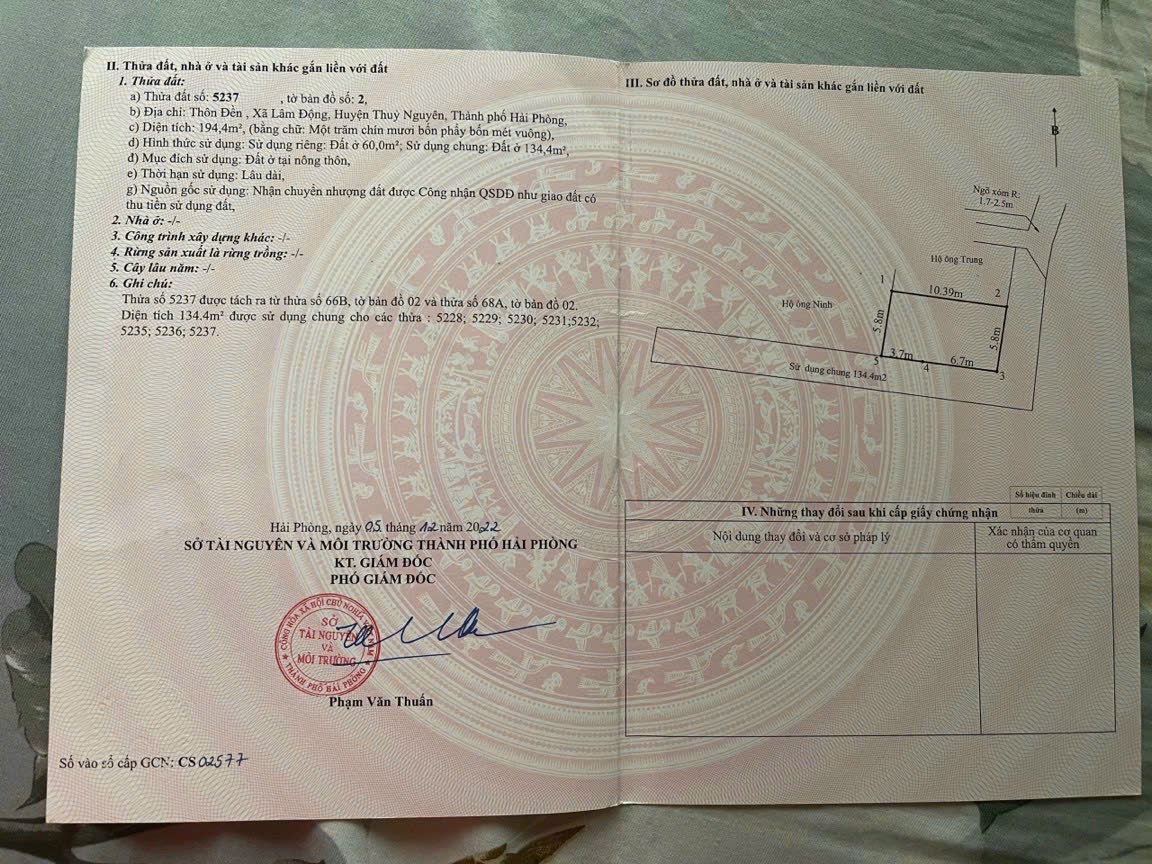 II. Thửa đất, nhà ở và tài sản khác gắn liền với đất
1. Thửa đất:
a) Thửa đất số: 5237 , tờ bản đồ số: 2,
b) Địa chỉ: Thôn Đền , Xã Lâm Động, Huyện Thuỷ Nguyên, Thành phố Hải Phòng,
c) Diện tích: 194,4m², (bằng chữ: Một trăm chín mươi bốn phẩy bốn mét vuông),
d) Hình thức sử dụng: Sử dụng riêng: Đất ở 60,0m²; Sử dụng chung: Đất ở 134,4m²,
đ) Mục đích sử dụng: Đất ở tại nông thôn,
e) Thời hạn sử dụng: Lâu dài,
g) Nguồn gốc sử dụng: Nhận chuyển nhượng đất được Công nhận QSDĐ như giao đất có
thu tiền sử dụng đất,
2. Nhà ở: -/-
3. Công trình xây dựng khác: -/-
4. Rừng sản xuất là rừng trồng: -/-
5. Cây lâu năm: -/-
6. Ghi chú:
Thửa số 5237 được tách ra từ thửa số 66B, tờ bản đồ 02 và thửa số 68A, tờ bản đồ 02.
Diện tích 134.4m² được sử dụng chung cho các thửa : 5228; 5229; 5230; 5231;5232;
5235; 5236; 5237.
Hải Phòng, ngày 05 tháng 12 năm 2022
SỞ TÀI NGUYÊN VÀ MÔI TRƯỜNG THÀNH PHỐ HẢI PHÒNG
KT. GIÁM ĐỐC
PHÓ GIÁM ĐỐC
CỘNG HÒA XÃ HỘI CHỦ NGHĨA VIỆT NAM
SỞ
TÀI NGUYÊN
VÀ
MÔI TRƯỜNG
THÀNH PHỐ HẢI PHÒNG
Phạm Văn Thuấn
Số vào sổ cấp GCN: CS02577
III. Sơ đồ thửa đất, nhà ở và tài sản khác gắn liền với đất
B
Ngõ xóm R:
1.7-2.5m
Hộ ông Trung
1
10.39m
2
Hộ ông Ninh
5.8m
5.8m
5
3.7m
4
6.7m
3
Sử dụng chung 134.4m2
Số hiệu đỉnh
thửa
Chiều dài
(m)
IV. Những thay đổi sau khi cấp giấy chứng nhận
Nội dung thay đổi và cơ sở pháp lý
Xác nhận của cơ quan
có thẩm quyền